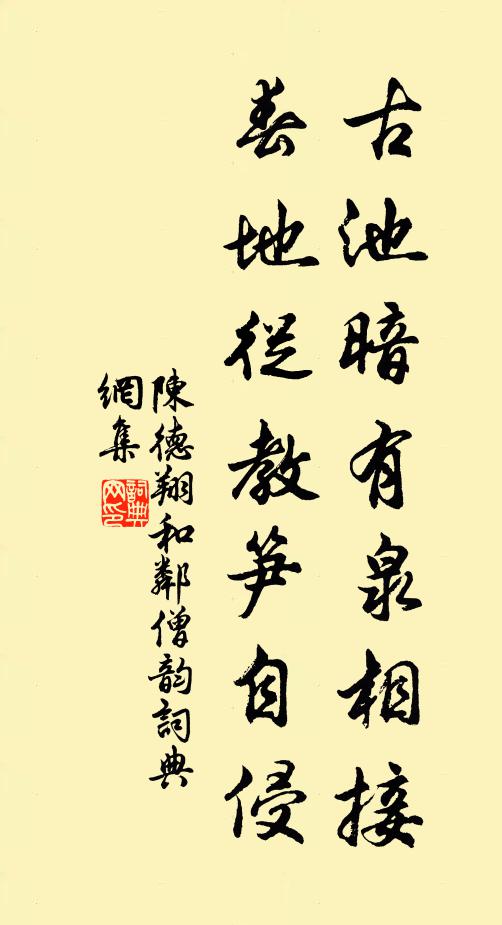 古池暗有泉相接
春地從教笋自侵
陳德翔和鄰僧韵詞典
網集
詞典
网印